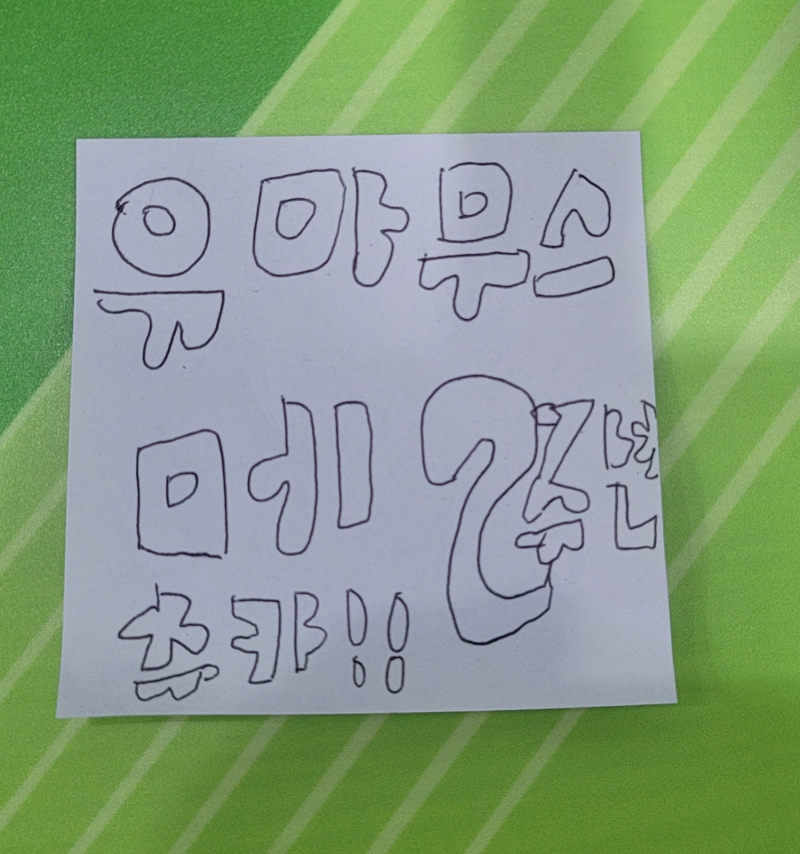 유마우스
메이 2주년
축카!!